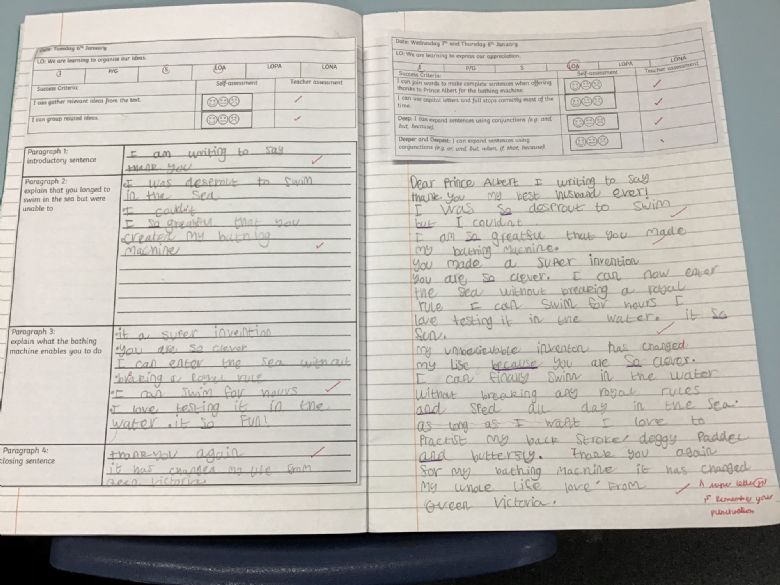 Date: Tuesday 6th January
LO: We are learning to organise our ideas.
J P/G S LOA LOPA LONA
Success Criteria: Self-assessment Teacher assessment
I can gather relevant ideas from the text.
I can group related ideas.
Paragraph 1:
introductory sentence
I am writing to say
thank you
Paragraph 2:
explain that you longed to
swim in the sea but were
unable to
I was desprout to swim
in the sea
I couldn't
I so greatful that you
created my bathing
Machine
Paragraph 3:
explain what the bathing
machine enables you to do
it a super invention
you are so clever
I can enter the sea without
braking a royal rule
I can swim for hours
I love testing it in the
water. it so fun!
Paragraph 4:
closing sentence
thank you again
it has changed my life from
Queen Victoria
Date: Wednesday 7th and Thursday 8th January
LO: We are learning to express our appreciation.
P/G S LOA LOPA LONA
Success Criteria: Self-assessment Teacher assessment
I can join words to make complete sentences when offering
thanks to Prince Albert for the bathing machine.
I can use capital letters and full stops correctly most of the
time.
Deep: I can expand sentences using conjunctions (e.g. and,
but, because).
Deeper and Deepest: I can expand sentences using
conjunctions (e.g. or, and, but, when, if, that, because)
Dear Prince Albert I writing to say
thank you my best husband ever!
I was so desprout to swim
but I couldn't
I am so greatful that you made
my bathing machine.
you made a super invention
you are so clever. I can now enter
the sea without breaking a royal
rule I can swim for hours I
love testing it in the water. it so
fun.
my unbelievable invention has changed
my life because you are so clever.
I can finally swim in the water
without breaking any royal rules
and sped all day in the sea.
as long as I want I love to
practist my back stroke, doggy paddel
and butterfly. Thank you again
for my bathing machine it has changed
my whole life love from
Queen Victoria.
A super letter
Remember your
punctuation